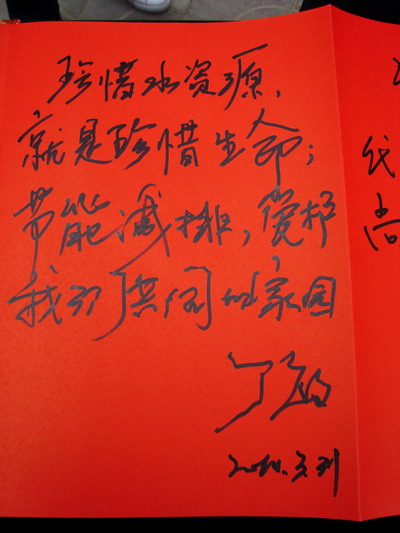 珍惜水资源，
就是珍惜生命；
节能减排，爱护
我们共同的家园
丁
代
尚